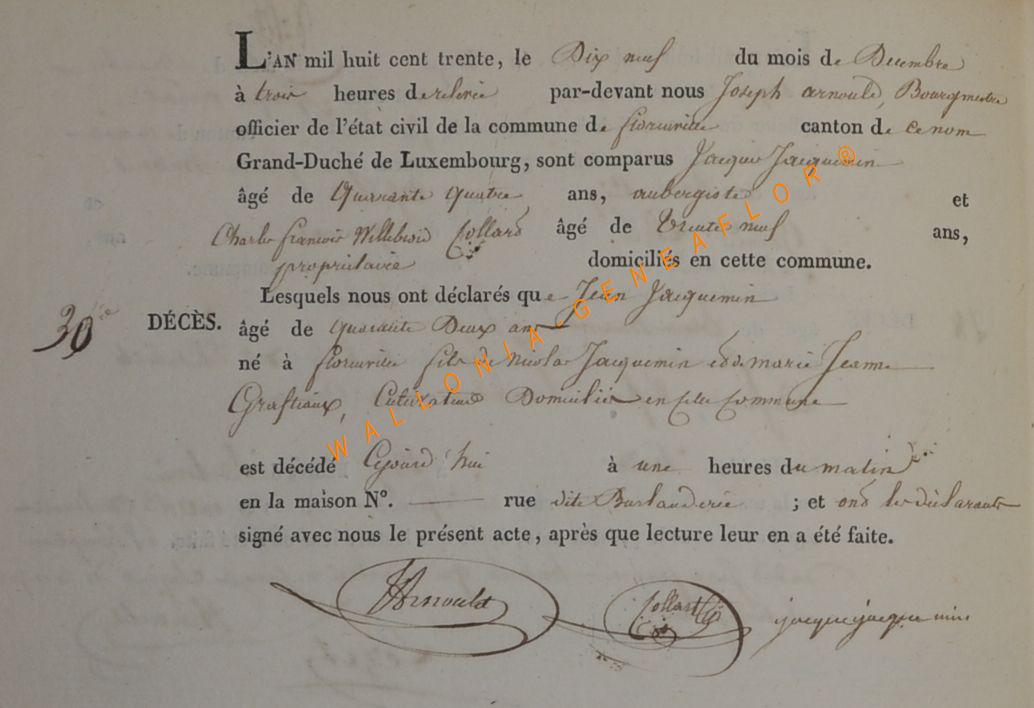 L'AN mil huit cent trente, le Dix neuf du mois de Decembre
à trois heures de relevée par-devant nous Joseph arnould, Bourgmestre
officier de l'état civil de la commune de florenville canton de ce nom
Grand-Duché de Luxembourg, sont comparus Jacques Jacquemin
âgé de Quarante quatre ans, aubergiste et
Charles francois Willebrord Collard âgé de trente neuf ans,
propriétaire domiciliés en cette commune.
Lesquels nous ont déclarés que Jean Jacquemin
30 DÉCÈS. âgé de quarante Deux ans
né à florenville fils de Nicolas Jacquemin et de marie Jeanne
Cultivateur Domicilié en cette Commune
est décédé Cejourd'hui à une heures du matin
en la maison N°. — rue dite ; et ont les déclarants
signé avec nous le présent acte, après que lecture leur en a été faite.
Arnould Collard jacque jacque min
WALLONIA-GENEAFLOR®